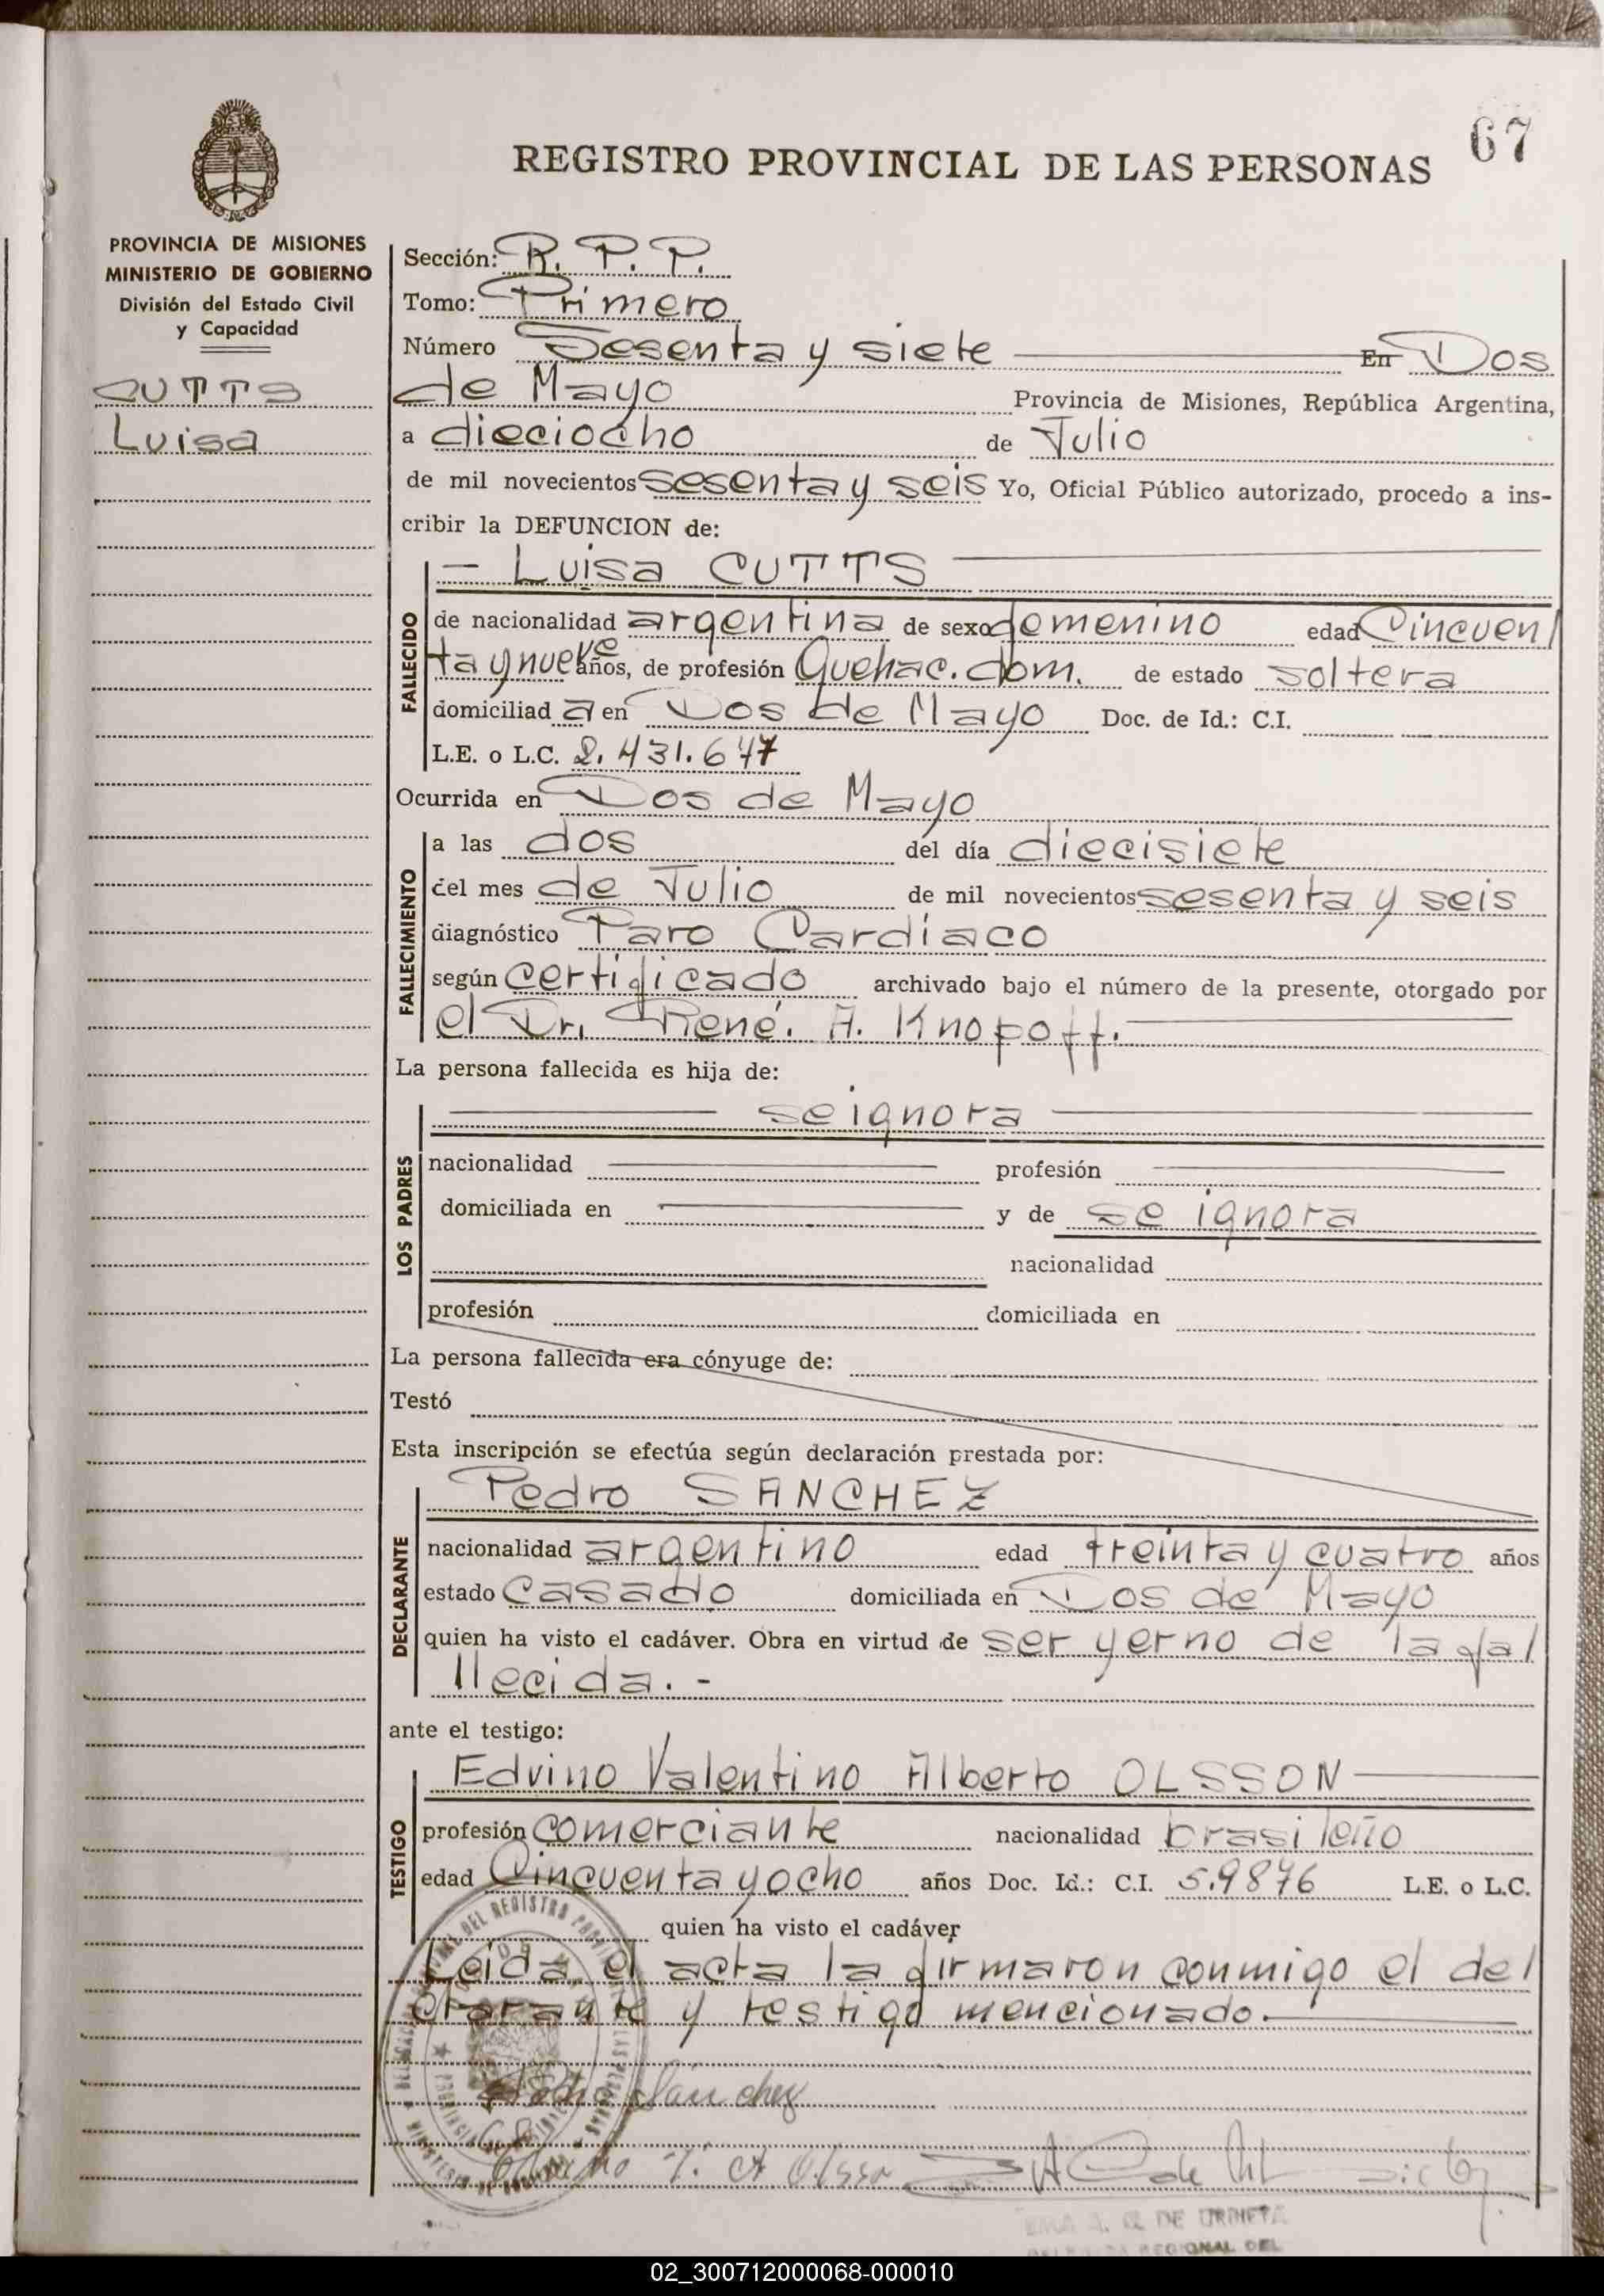 67
REGISTRO PROVINCIAL DE LAS PERSONAS
PROVINCIA DE MISIONES
MINISTERIO DE GOBIERNO
División del Estado Civil
y Capacidad
CUTTS
Luisa
Sección: R. P. P.
Tomo: Primero
Número Sesenta y siete En Dos
de Mayo Provincia de Misiones, República Argentina,
a dieciocho de Julio
de mil novecientos sesenta y seis Yo, Oficial Público autorizado, procedo a ins-
cribir la DEFUNCION de:
- Luisa CUTTS
FALLECIDO
de nacionalidad argentina de sexo femenino edad Cincuen
ta y nueve años, de profesión Quehac. dom. de estado soltera
domiciliad a en Dos de Mayo Doc. de Id.: C.I.
L.E. o L.C. 2.431.647
Ocurrida en Dos de Mayo
FALLECIMIENTO
a las dos del día diecisiete
del mes de Julio de mil novecientos sesenta y seis
diagnóstico Paro Cardíaco
según certificado archivado bajo el número de la presente, otorgado por
el Dr. René. A. Knopoff.
La persona fallecida es hija de:
LOS PADRES
se ignora
nacionalidad profesión
domiciliada en y de se ignora
nacionalidad
profesión domiciliada en
La persona fallecida era cónyuge de:
Testó
Esta inscripción se efectúa según declaración prestada por:
DECLARANTE
Pedro SANCHEZ
nacionalidad argentino edad treinta y cuatro años
estado casado domiciliada en Dos de Mayo
quien ha visto el cadáver. Obra en virtud de ser yerno de la fal
llecida.-
ante el testigo:
TESTIGO
Edvino Valentino Alberto OLSSON
profesión comerciante nacionalidad brasileño
edad Cincuenta y ocho años Doc. Id.: C.I. 5.9876 L.E. o L.C.
quien ha visto el cadáver
Leída el acta la firmaron conmigo el de
clarante y testigo mencionado.
Sánchez
DE URDIETA
REGIONAL DEL
02_300712000068-000010